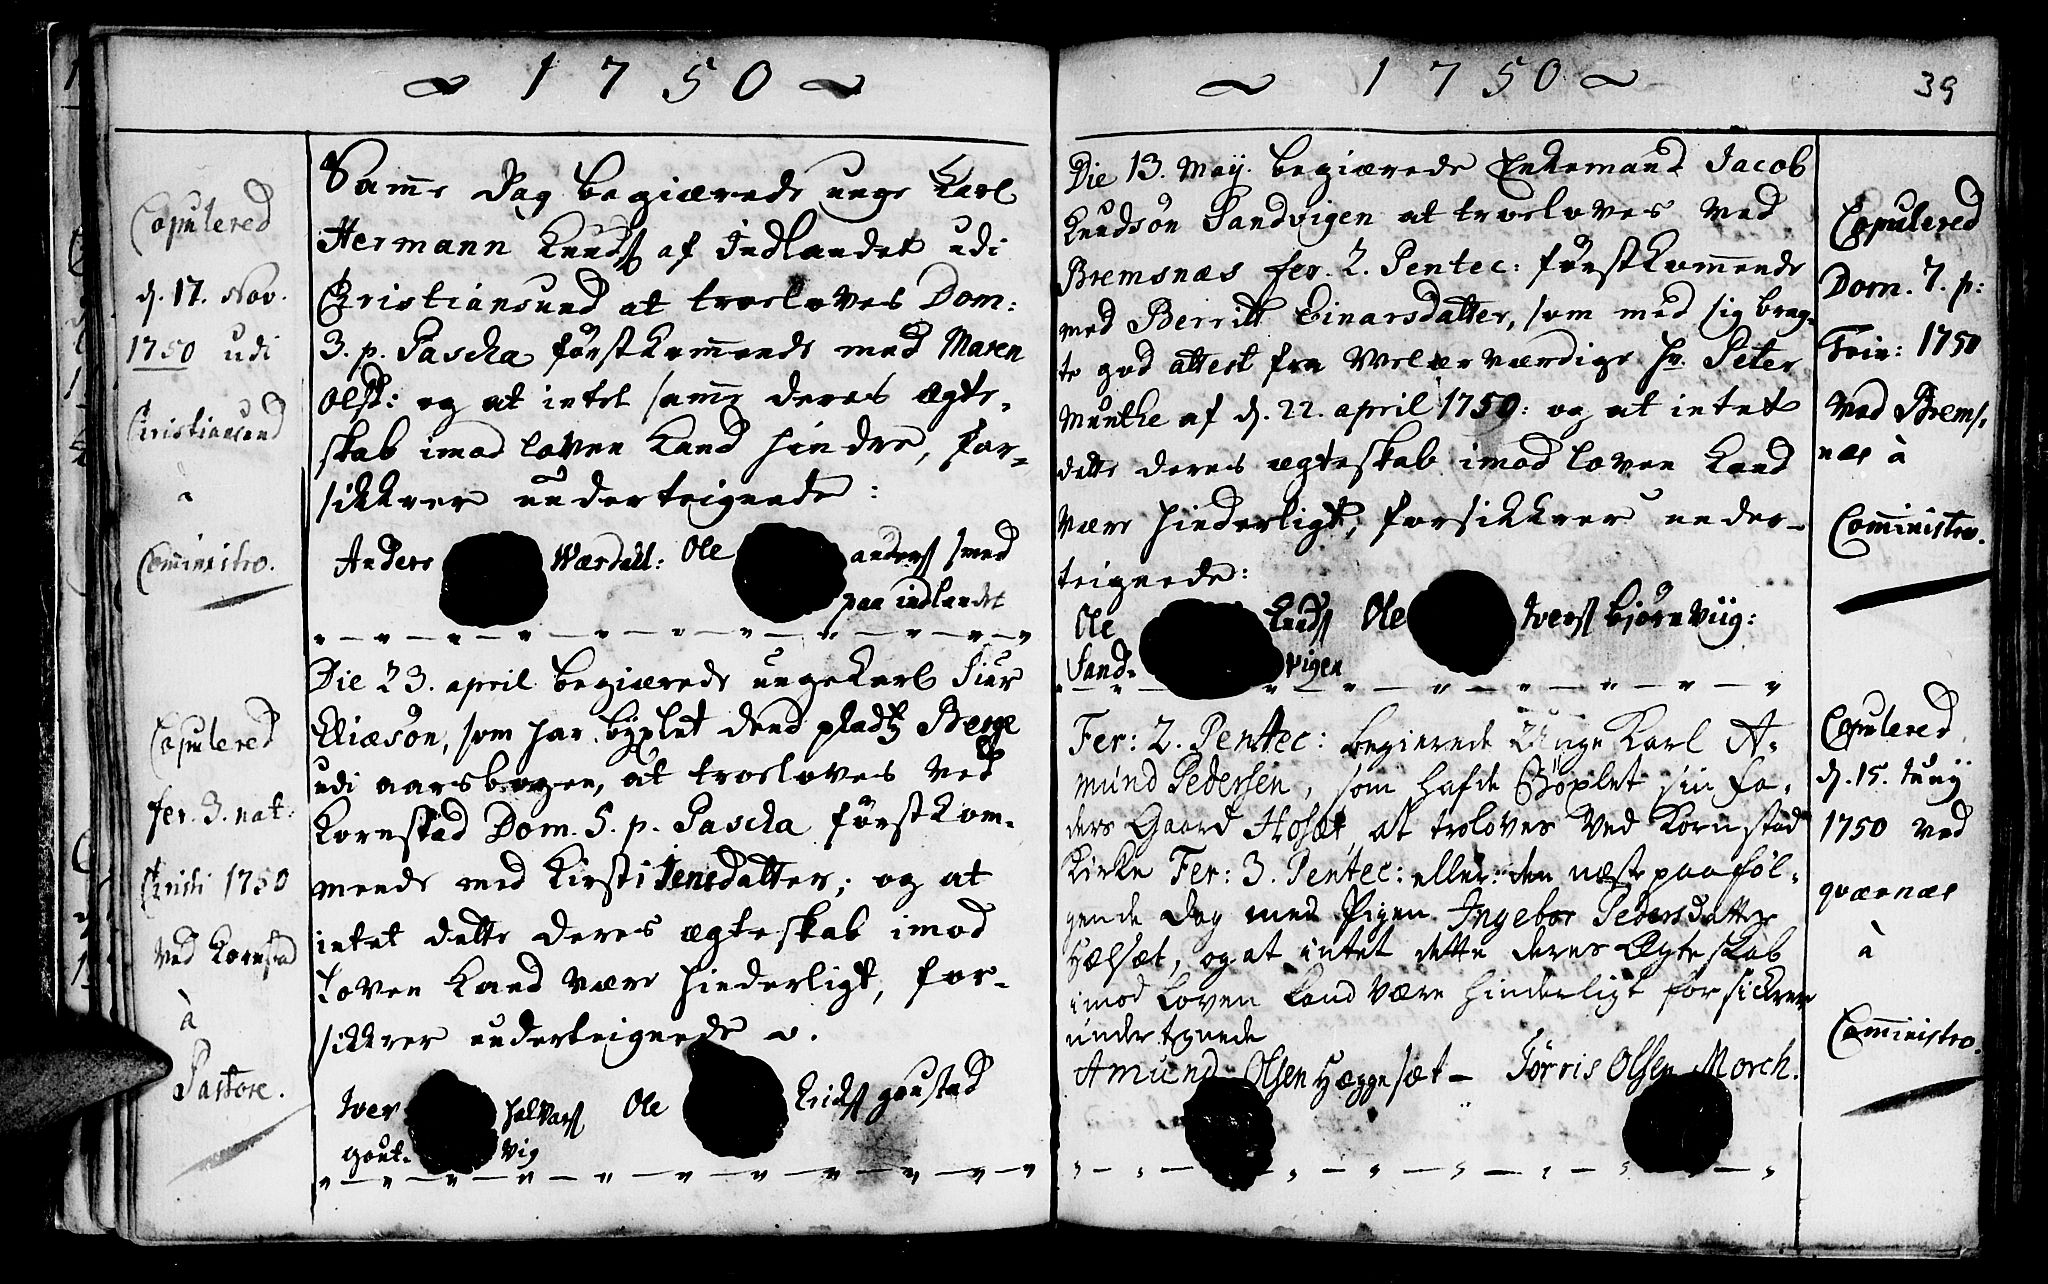 ~ 1750 ~
Copulered
d. 17. Nov.
1750 udi
Christiansund
a
Comministro.
Samme Dag begiærede unge Karl
Hermann Knuds: af Indlandet udi
Christiansund at troeloves Dom:
3. p. Pascha förstkommende med Maren
Olsd: og at intet samme deres Ægte-
skab imod loven kand hindre, for-
sikkrer underteignede:
Anders Wærdahl: Ole anders: smed
paa indlandet
Copulered
fer. 3. nat:
Christi 1750
Ved Kornstad
à
Pastore.
Die 23. april begiærede unge Karl Siur
Eliæsön, som har byxlet dend pladtz Berge
udi aarsbogen, at troeloves Ved
Kornstad Dom. 5. p. Pascha förstkom-
mende med Kirsti Jensdatter; og at
intet dette deres ægteskab imod
Loven kand være hinderligt, for-
sikkrer underteignede
Iver halvars:
gout- vig
Ole Erichs: goustad
~ 1750 ~ 39
Die 13. Maij. begiærede Enkemand Jacob
Knudsön Sandvigen at troeloves Ved
Bremsnæs fer. 2. Pentec: förstkommende
med Berritt Einarsdatter, som med sig brag-
te god attest fra Welærværdige Hr. Peter
Munthe af d. 22. april 1750: og at intet
dette deres ægteskab imod loven kand
være hinderligt, forsikkrer under-
teignede:
Ole Knuds: Ole Ivers: Bjørnviig:
Sand- vigen
Copulered
Dom. 7. p:
Trin: 1750
Ved Brems-
næs à
Comministro.
Fer: 2. Pentec: begierede Unge Karl A-
mund Pedersen, som hafde Böxlet sin Fa-
ders Gaard Hosæt, at troloves Ved Kornstad
Kirke Fer: 3. Pentec: eller: den næst paaföl-
gende Dag med Pigen Ingebor Pedersdatter
Hælsæt, og at intet dette deres Ægteskab
imod Loven kand Være hinderligt forsickrer
undertegnede
Amund Olsen Hæggesæt - Törris Olsen Morch.
Copulered
d. 15. Junij
1750 ved
qværnæs
à
Comministro.